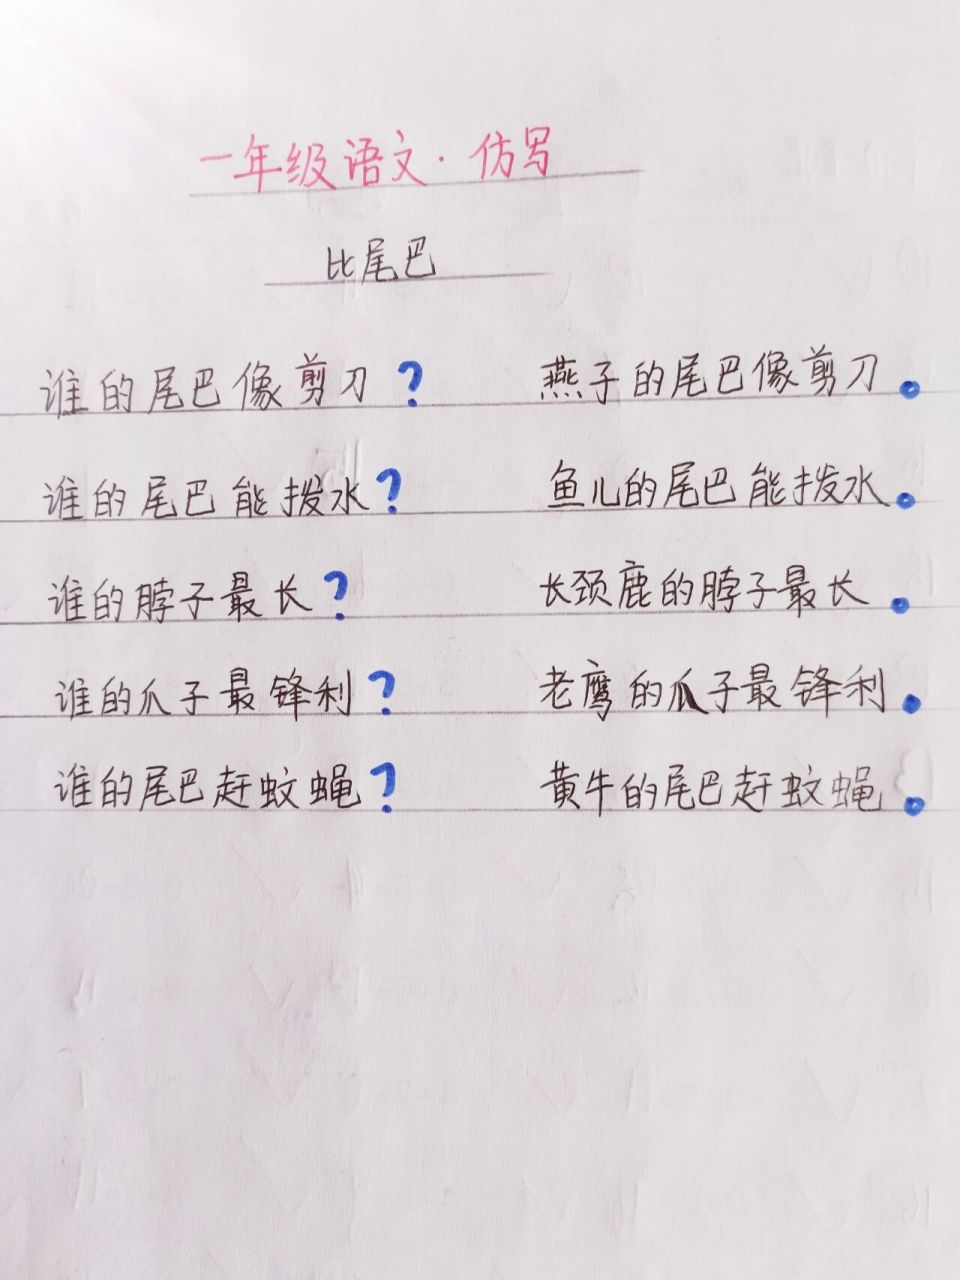 一年级语文·仿写
比尾巴
谁的尾巴像剪刀? 燕子的尾巴像剪刀。
谁的尾巴能拨水? 鱼儿的尾巴能拨水。
谁的脖子最长? 长颈鹿的脖子最长。
谁的爪子最锋利? 老鹰的爪子最锋利。
谁的尾巴赶蚊蝇? 黄牛的尾巴赶蚊蝇。